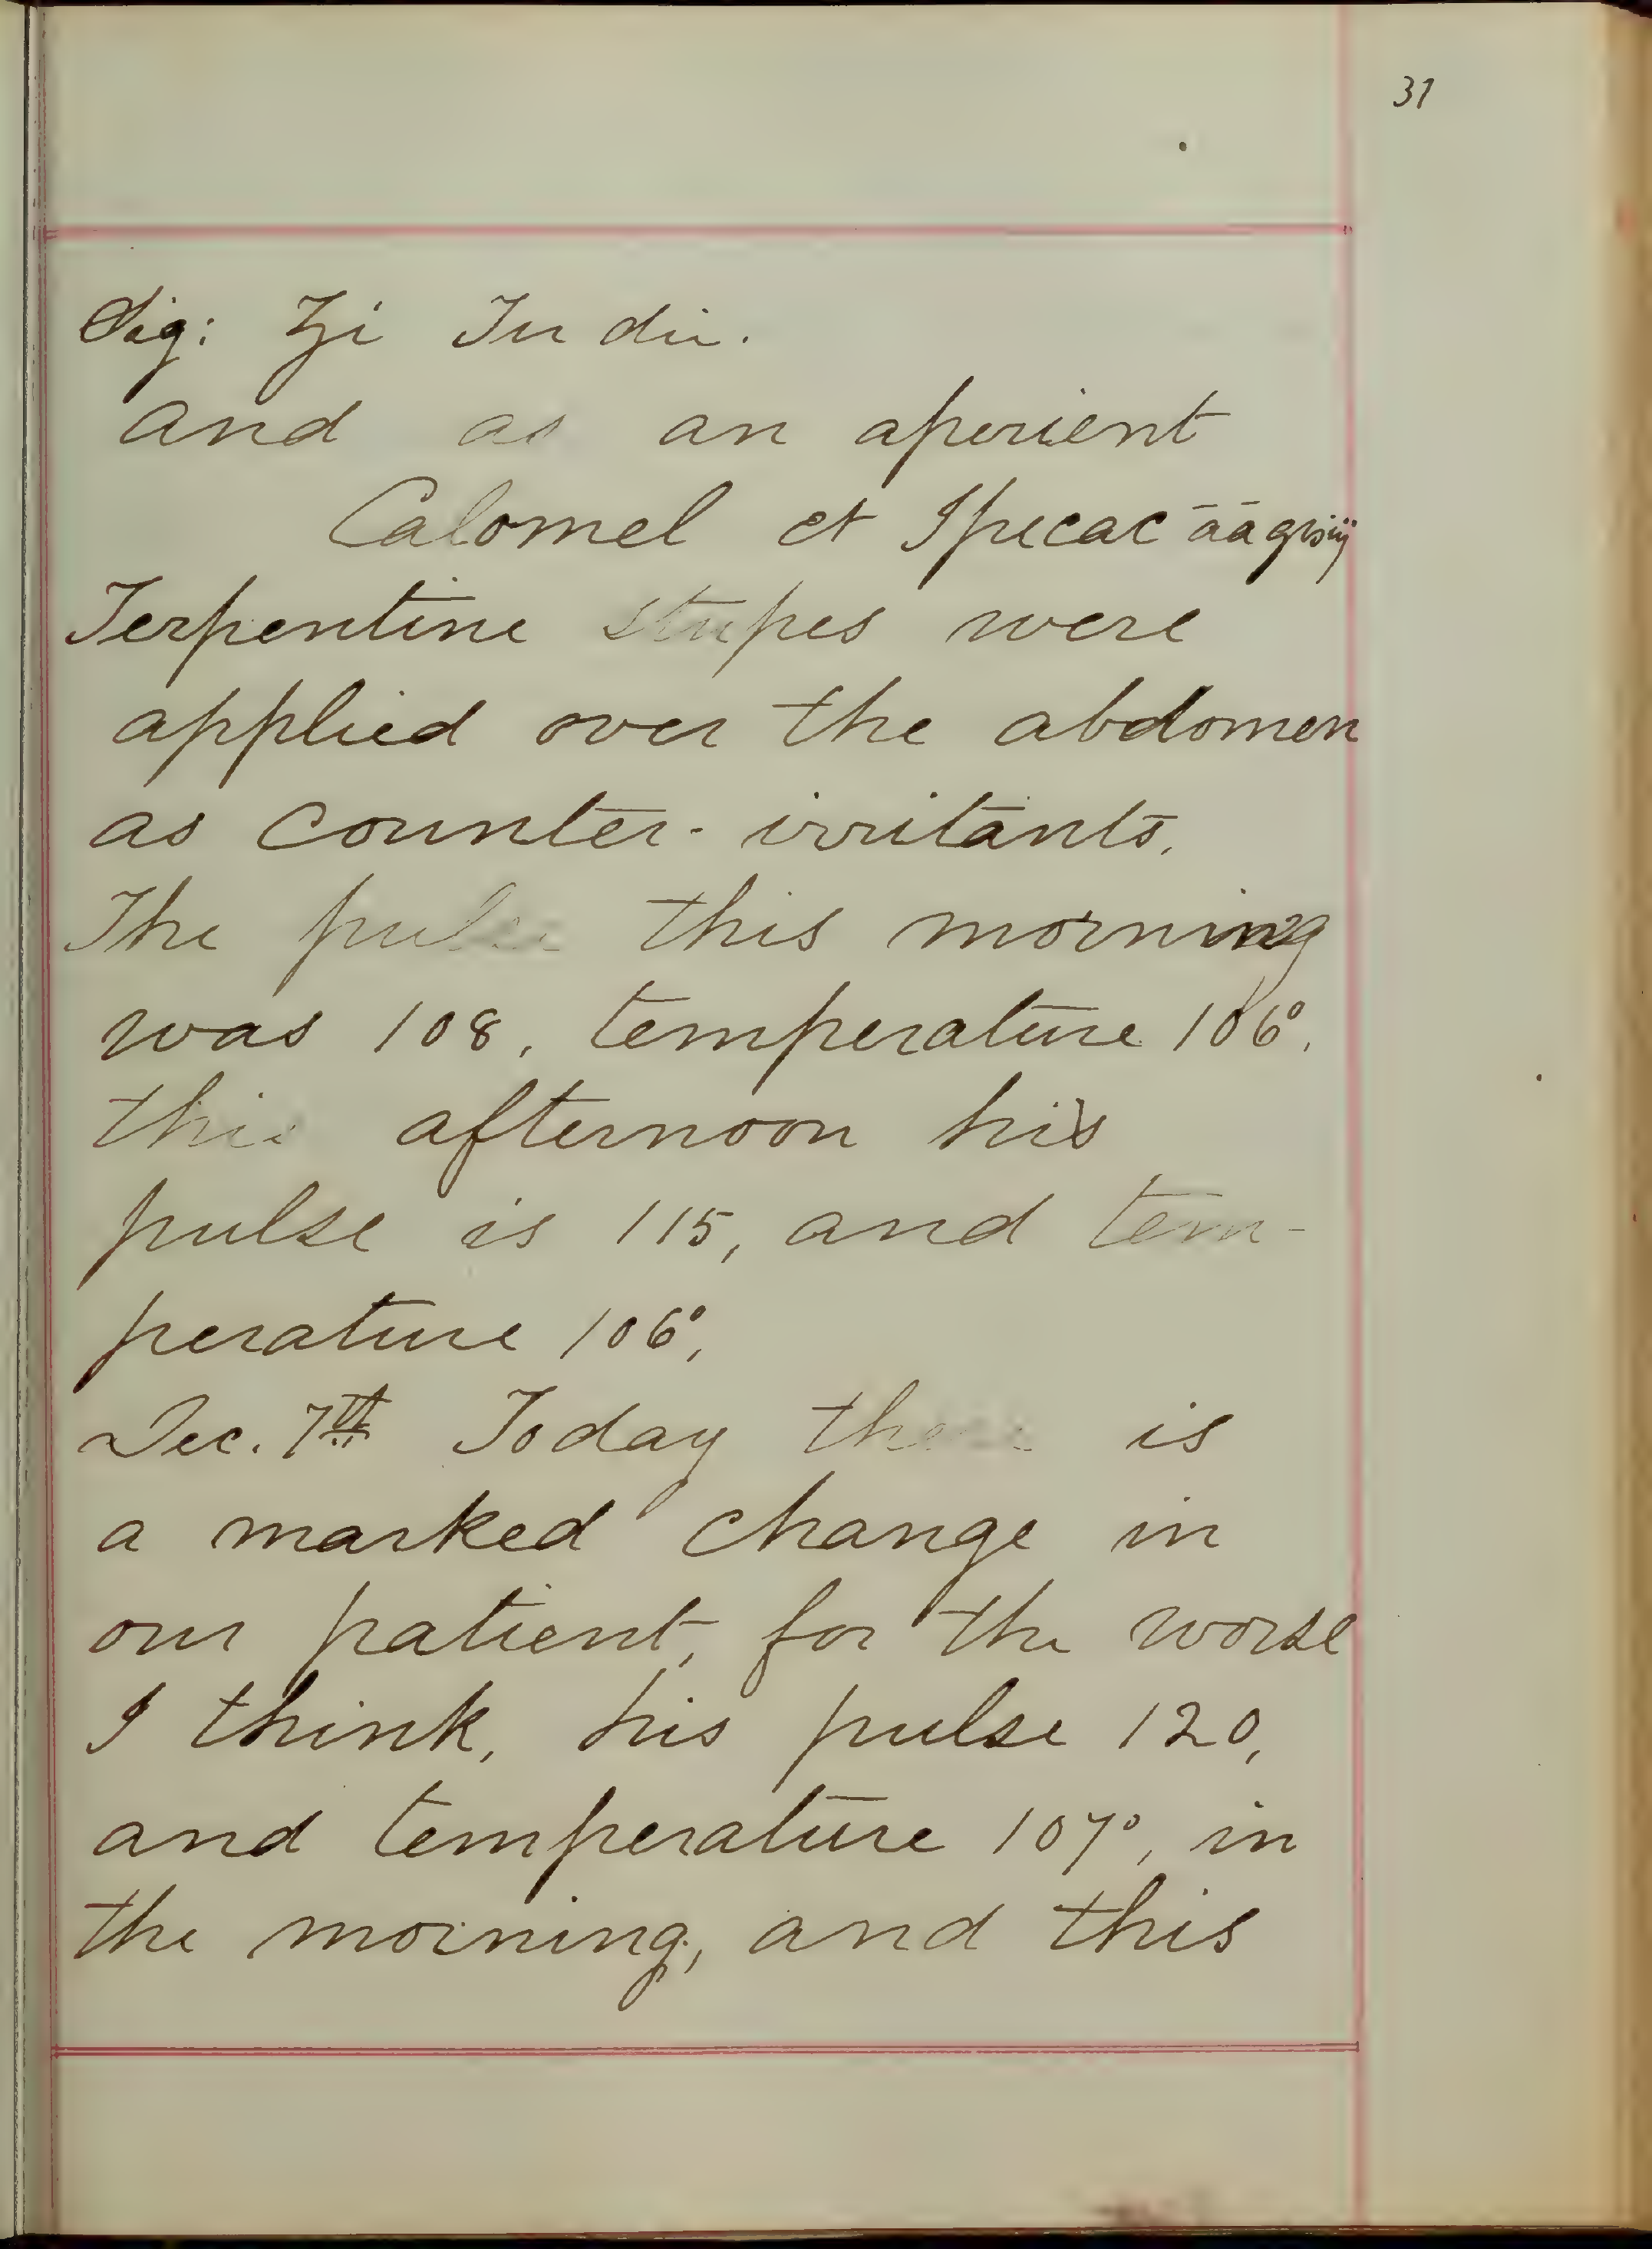 31
Sig: ʒi Ter die.
And as an aperient
Calomel et Ipecac āā grsiij
Terpentine stupes were
applied over the abdomen
as counter-irritants.
The pulse this morning
was 108, temperature 106°.
this afternoon his
pulse is 115, and tem-
perature 106°,
Dec. 7th Today there is
a marked change in
our patient, for the worse
I think, his pulse 120,
and temperature 107°, in
the morning, and this